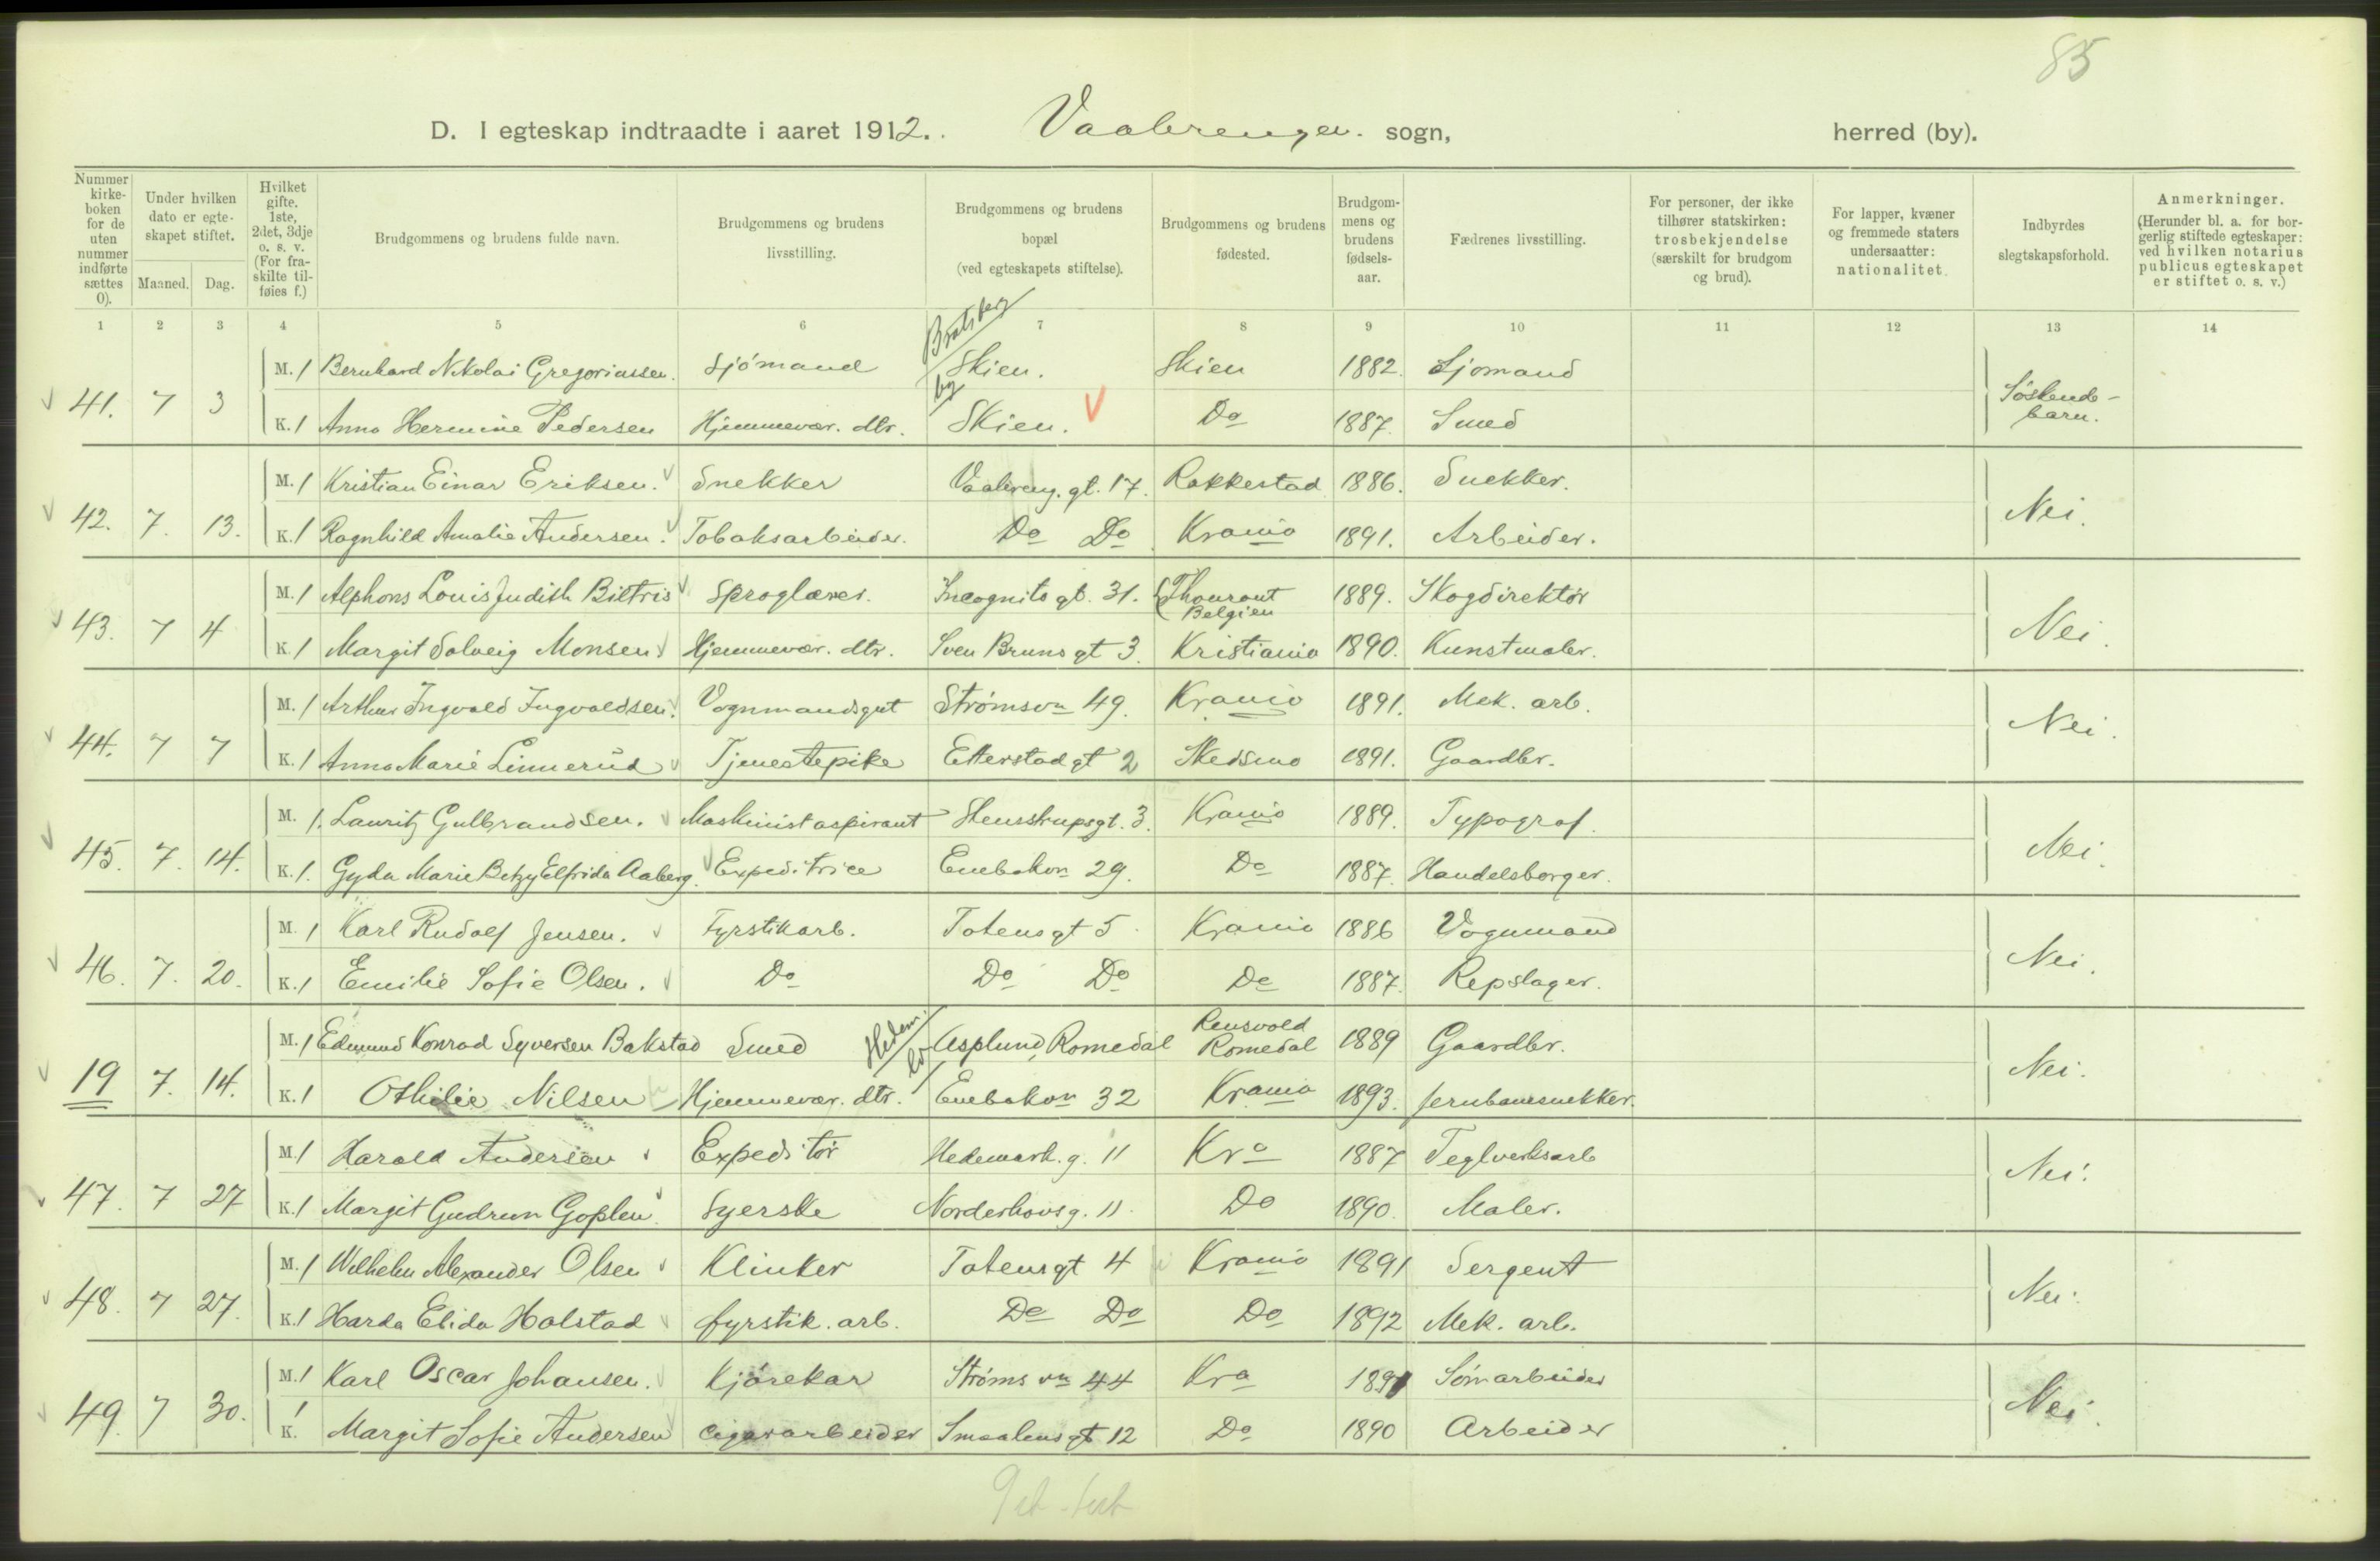 85
D. I egteskap indtraadte i aaret 1912. Vaalerengen. sogn, herred (by).
Nummer kirkeboken for de uten nummer indførte sættes 0).
Under hvilken dato er egteskapet stiftet.
Maaned. Dag.
Hvilket gifte. 1ste, 2det, 3dje o. s. v. (For fraskilte tilføies f.)
Brudgommens og brudens fulde navn.
Brudgommens og brudens livsstilling.
Brudgommens og brudens bopæl (ved egteskapets stiftelse).
Brudgommens og brudens fødested.
Brudgommens og brudens fødselsaar.
Fædrenes livsstilling.
For personer, der ikke tilhører statskirken: trosbekjendelse (særskilt for brudgom og brud).
For lapper, kvæner og fremmede staters undersaatter: nationalitet.
Indbyrdes slegtskapsforhold.
Anmerkninger. (Herunder bl. a. for borgerlig stiftede egteskaper: ved hvilken notarius publicus egteskapet er stiftet o. s. v.)
1 2 3 4 5 6 7 8 9 10 11 12 13 14
Bratsberg
by
M. 1 Bernhard Nikolai Gregoriassen. Sjömand Skien. Skien 1882. Sjömand
41. 7 3 Söskendebarn.
K. 1 Anna Hermine Pedersen Hjemmevær. dtr. Skien. Do 1887. Smed
M. 1 Kristian Einar Eriksen. Snekker Vaalereng. gt. 17. Rakkestad 1886. Snekker.
42. 7. 13. Nei.
K. 1 Ragnhild Amalie Andersen. Tobaksarbeider. Do Do Krania 1891. Arbeider.
M. 1 Alphons Louis Judith Biltris Sproglærer. Incognito gt. 31. Thourout Belgien 1889. Skogdirektör
43. 7 4 Nei.
K. 1 Margit Solveig Monsen Hjemmevær. dtr. Sven Bruns gt 3. Kristiania 1890. Kunstmaler.
M. 1 Arthur Ingvald Ingvaldsen. Vognmandsgut Strømsvn 49. Krania 1891. Mek. arb.
44. 7 7 Nei.
K. 1 Anna Marie Linnerud Tjenestepike Etterstadgt 2 Skedsmo 1891. Gaardbr.
M. 1. Lauritz Gulbrandsen. Maskinistaspirant Stensstrupsgt. 3. Krania 1889. Typograf.
45. 7. 14. Nei.
K. 1. Gyda Marie Betzy Elfrida Aaberg. Expeditrice Enebakvn 29. Do 1887. Handelsborger.
M. 1 Karl Rudolf Jensen. Fyrstikarb. Totensgt 5 Krania 1886 Vognmand
46. 7. 20. Nei.
K. 1 Emilie Sofie Olsen. Do Do Do Do 1887. Repslager.
Hedem.
M. 1 Edmund Konrad Syversen Bakstad Smed Asplund, Romedal Rensvold Romedal 1889 Gaardbr.
19 7. 14. Nei.
K. 1 Othilie Nilsen Hjemmevær. dtr. Enebakvn 32 Krania 1893. Jernbanesnekker.
M. 1 Harald Andersen Expeditör Hedemark. g. 11 Kra 1887 Teglverksarb
47. 7 27 Nei.
K. 1 Margit Gudrun Goplen. Syerske Norderhovsg. 11. Do 1890. Maler.
M. 1 Wilhelm Alexander Olsen Klinker Totensgt 4 Krania 1891 Sergent
48. 7 27. Nei.
K. 1 Harda Elida Halstad fyrstik. arb. Do Do Do 1892 Mek. arb.
M. 1 Karl Oscar Johansen. Kjörekar Strøms vn 44 Kra 1891 Sömarbeider
49. 7 30. Nei.
K. 1 Margit Sofie Andersen cigararbeider Smaalensgt 12 Do 1890 Arbeider